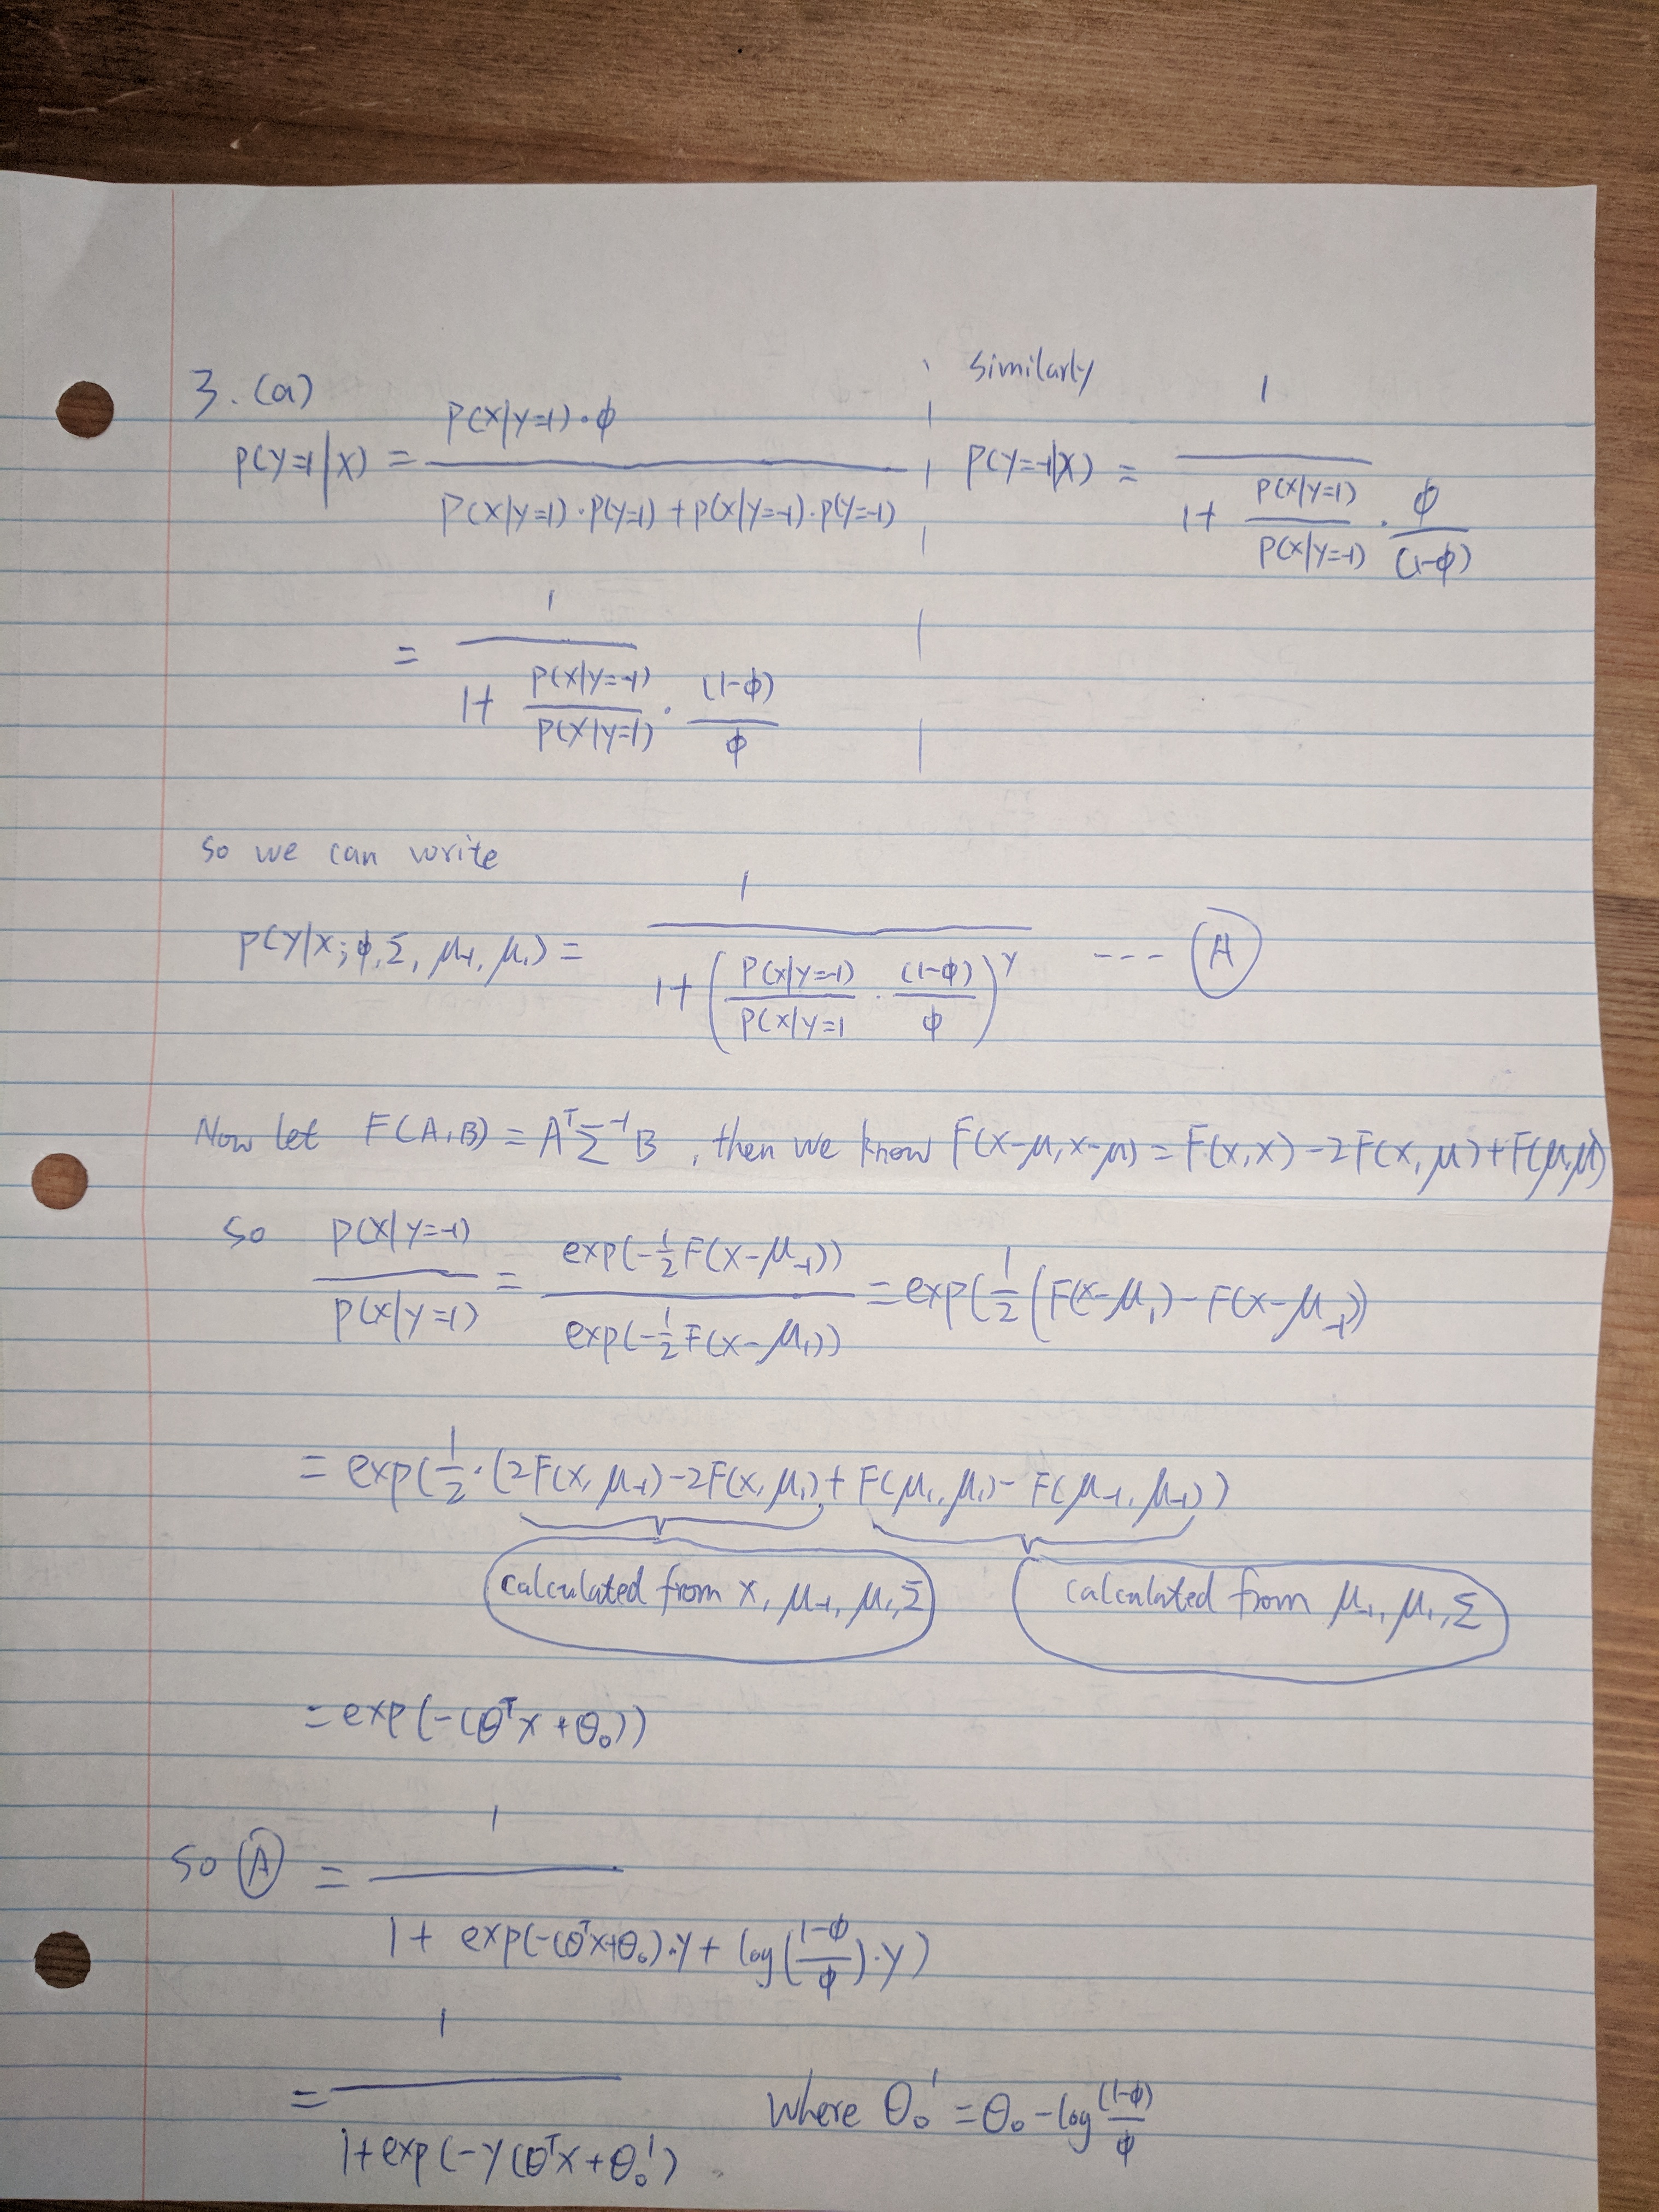 3. (a)
P(Y=1|X) = P(X|Y=1)·φ / P(X|Y=1)·P(Y=1)+P(X|Y=-1)·P(Y=-1)
= 1 / 1+ P(X|Y=-1)/P(X|Y=1) · (1-φ)/φ
Similarly
P(Y=-1|X) = 1 / 1+ P(X|Y=1)/P(X|Y=-1) · φ/(1-φ)
So we can write
P(Y|X; φ, Σ, μ₋₁, μ₁) = 1 / 1+(P(X|Y=-1)/P(X|Y=1 · (1-φ)/φ)^Y --- Ⓐ
Now let F(A,B) = AᵀΣ⁻¹B, then we know F(X-μ, X-μ) = F(X,X)-2F(X,μ)+F(μ,μ)
So P(X|Y=-1)/P(X|Y=1) = exp(-½F(X-μ₋₁))/exp(-½F(X-μ₁)) = exp(½(F(X-μ₁)-F(X-μ₋₁))
= exp(½·(2F(X,μ₋₁)-2F(X,μ₁)+F(μ₁,μ₁)-F(μ₋₁,μ₋₁))
calculated from X, μ₋₁, μ₁, Σ calculated from μ₋₁, μ₁, Σ
= exp(-(θᵀX+θ₀))
So Ⓐ = 1 / 1+ exp(-(θᵀX+θ₀)·Y+log((1-φ)/φ)·Y)
= 1 / 1+exp(-Y(θᵀX+θ₀') where θ₀' = θ₀-log (1-φ)/φ